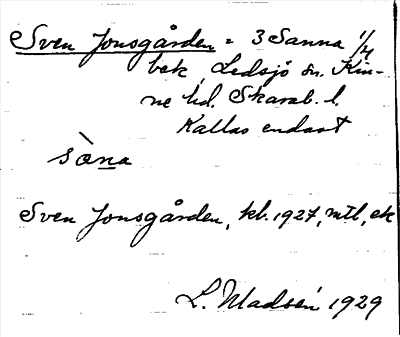 Sven Jonsgården = 3 Sanna 1/4
bek, Ledsjö sn. Kin-
ne hd. Skarab. l.
Kallas endast
sàna
Sven Jonsgården, kb. 1927, mtl, ek
L. Madsén 1929